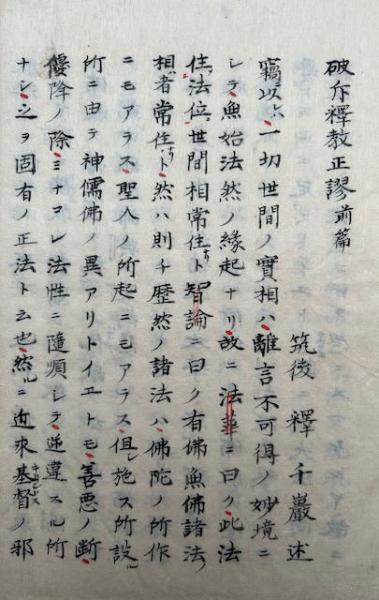 破斥釋教正謬前篇
筑後 釋千巖述
竊以レハ一切世間ノ實相ハ離言不可得ノ妙境ニ
シテ無始法然ノ緣起ナリ故ニ法華ニ曰ク此法
住法位世間相常住ナリト智論ニ曰ク有佛無佛諸法ノ
相者常住ナリト然ハ則チ歷然ノ諸法ハ佛陀ノ所作
ニモアラス聖人ノ所起ニモアラス但シ施ス所設ル
所ニ由テ神儒佛ノ異アリトイエトモ善悪ノ斷
優降ノ除ミナコレ法性ニ隨順シテ逆違スル所
ナシ之ヲ固有ノ正法ト云也然ルニ近來基督キリシトノ邪